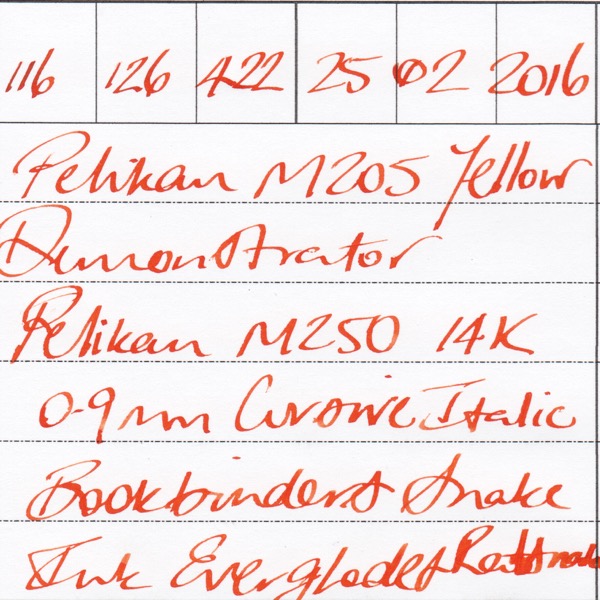 116 126 422 25 02 2016
Pelikan M205 Yellow
Demonstrator
Pelikan M250 14K
0.9mm Cursive Italic
Bookbinders Snake
Ink Everglades